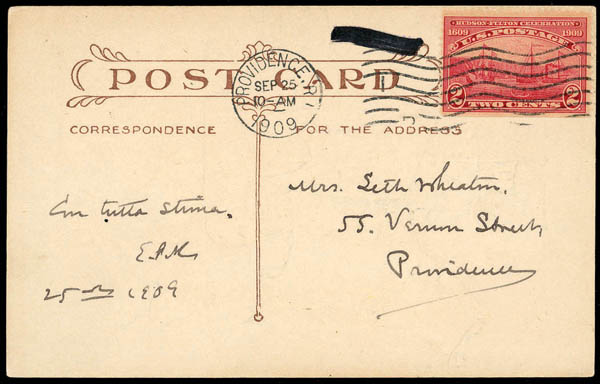 HUDSON-FULTON CELEBRATION
1609 1909
U.S. POSTAGE
2 TWO CENTS 2
PROVIDENCE, R.I.
SEP 25
10-AM
1909
POST CARD
CORRESPONDENCE FOR THE ADDRESS
Con tutta stima.
25 1909
Mrs. Seth Wheaton,
55. Vernon Street,
Providence